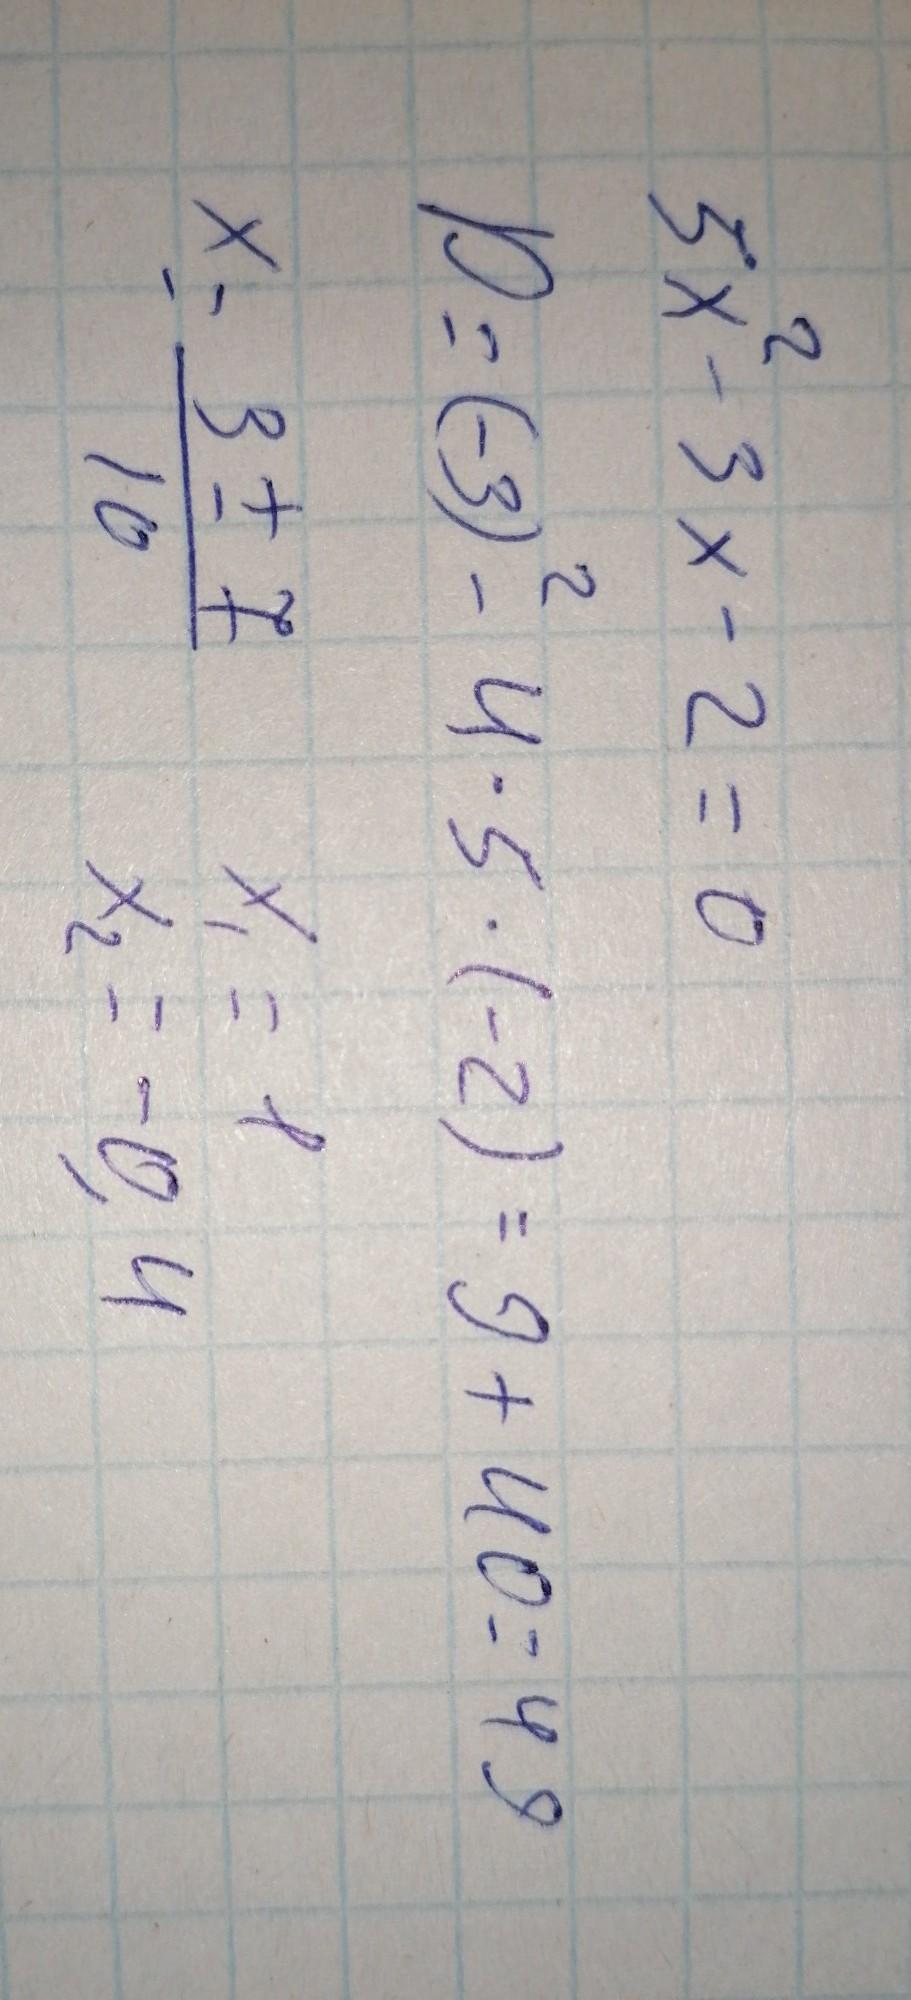 5x² - 3x - 2 = 0
D = (-3)² - 4 · 5 · (-2) = 9 + 40 = 49
x = (3 ± 7) / 10
x₁ = 1
x₂ = -0,4